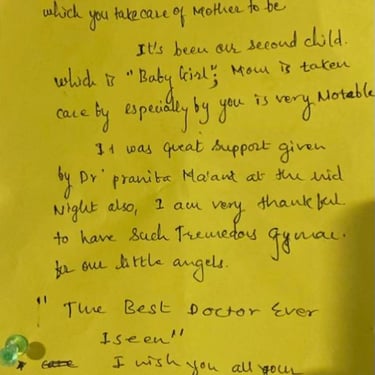 which you take care of Mother to be
It's been our second child.
which is "Baby Girl"; Mom is taken
care by especially by you is very Notable
It was great support given
by Dr. pranita Ma'am at the mid
Night also, I am very thankful
to have such Tremedous Gynac.
for our little angels.
"The Best Doctor Ever
I seen"
I wish you all your